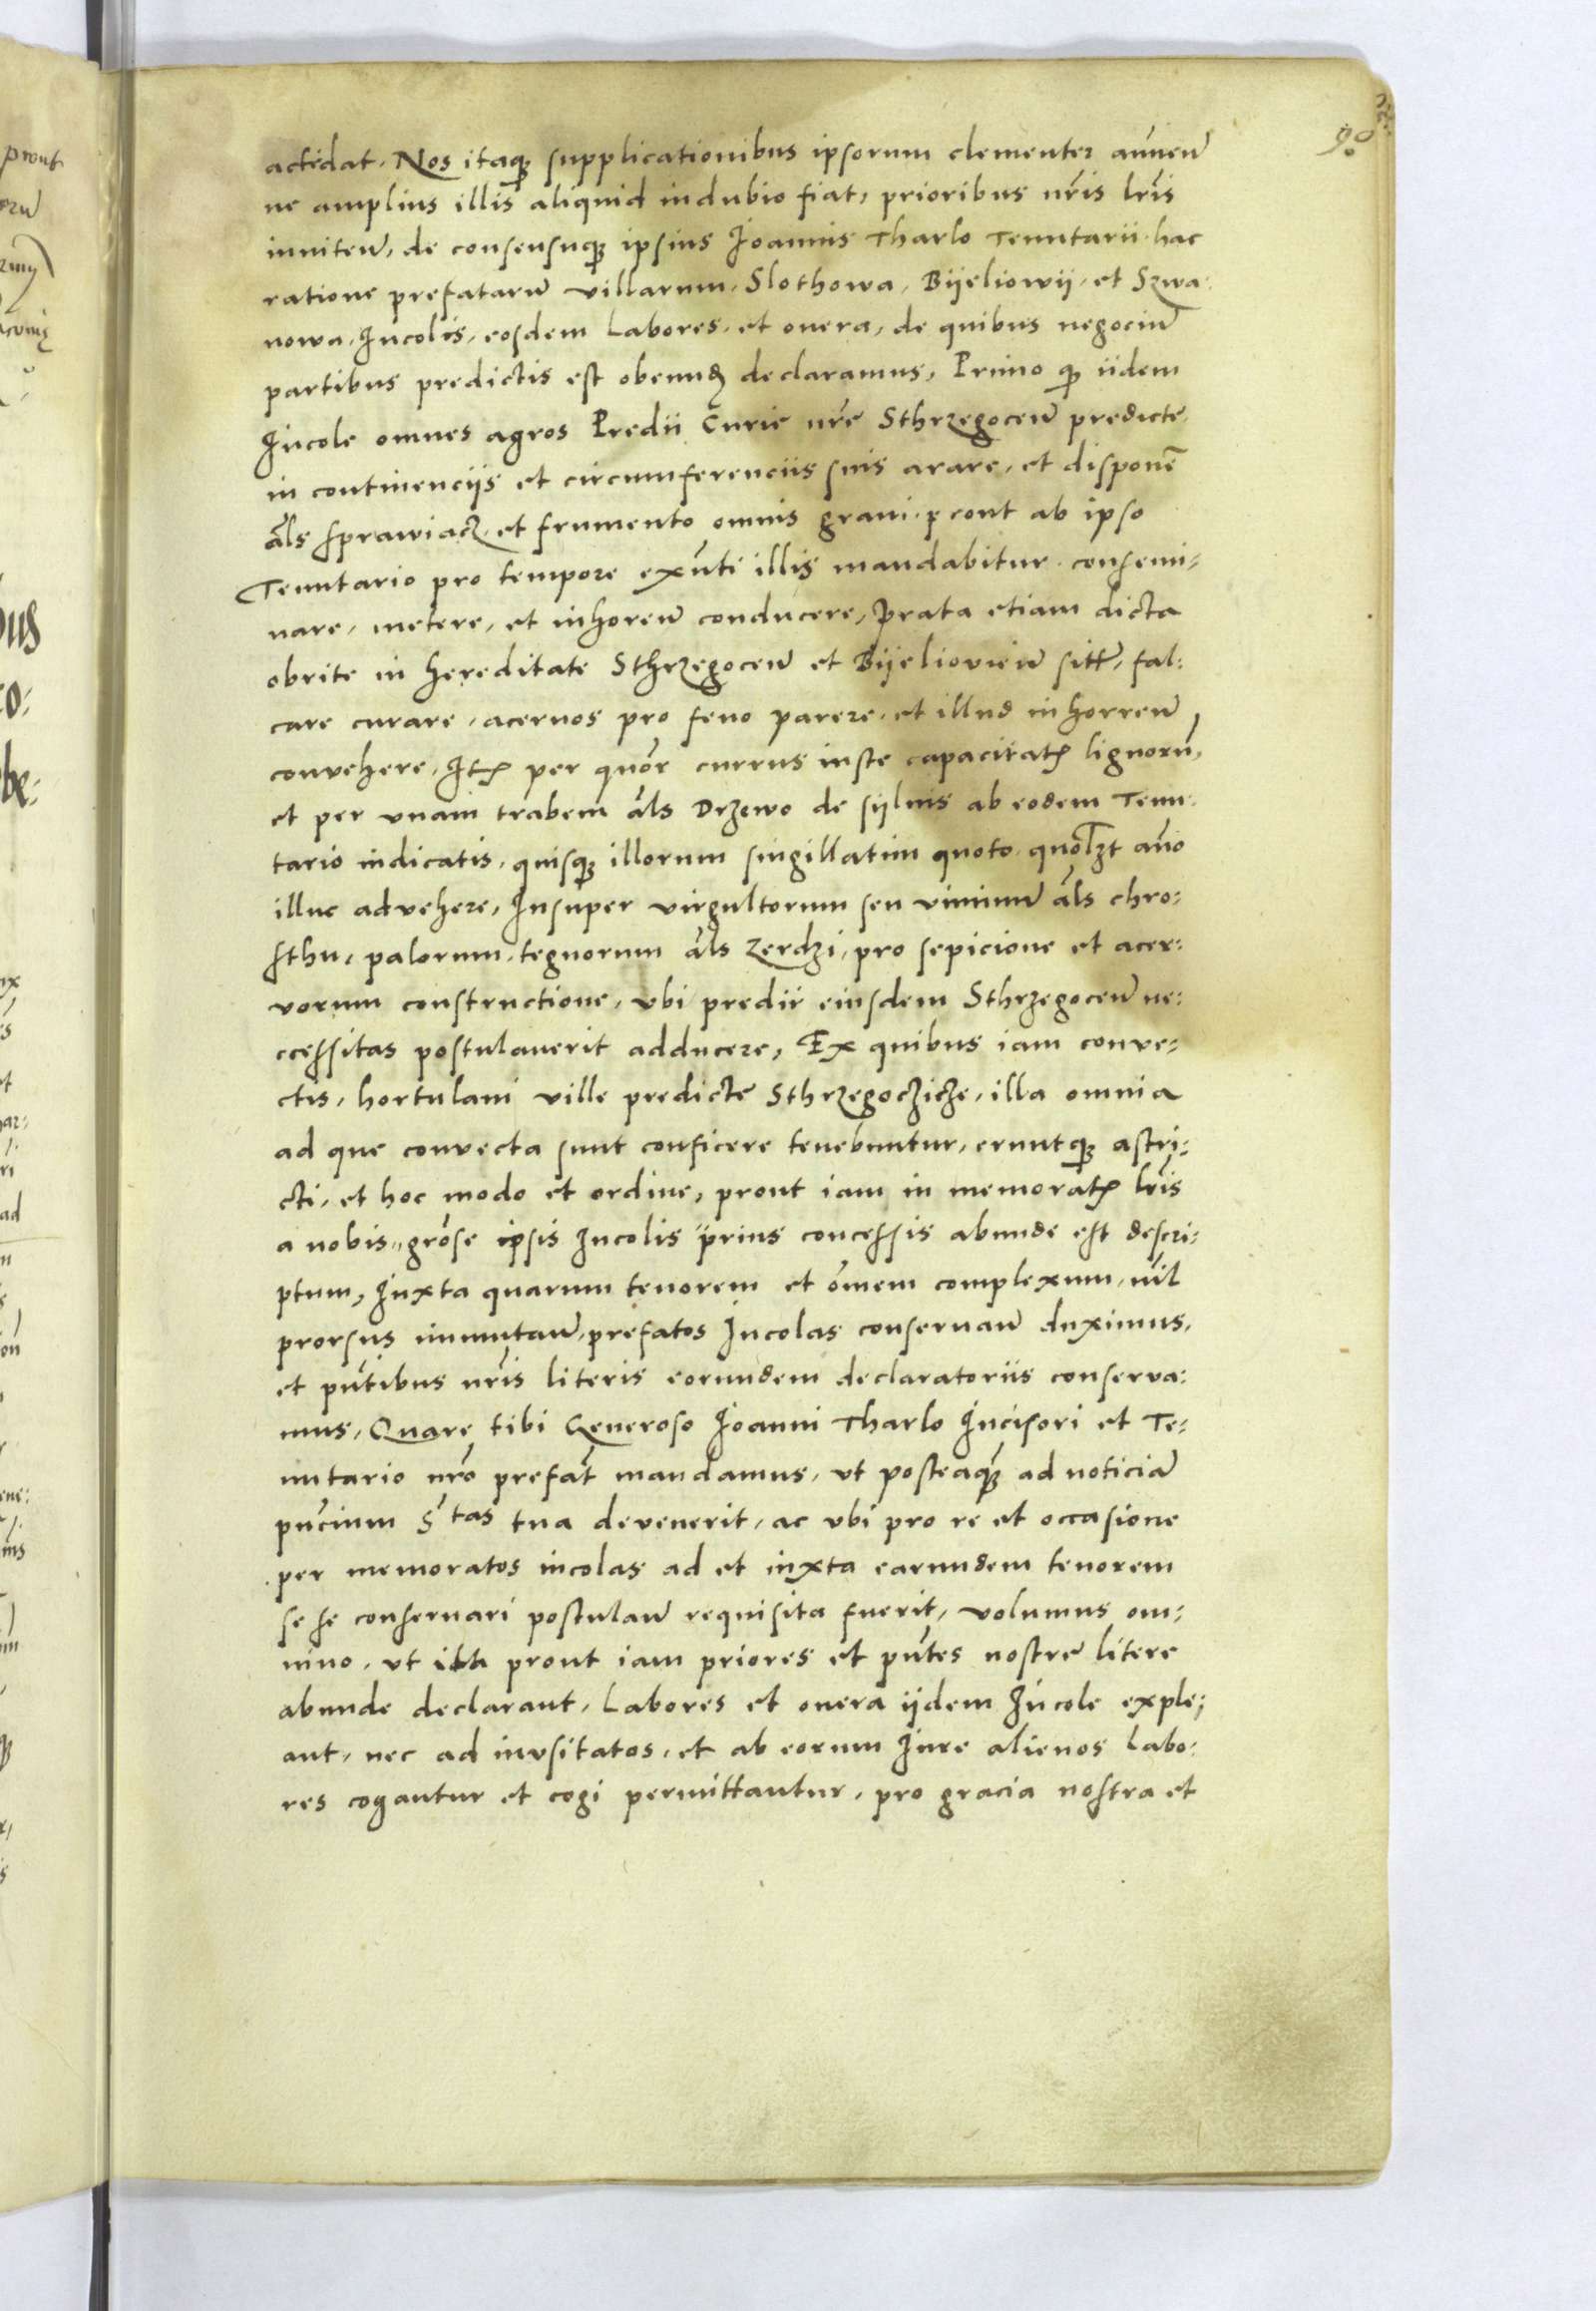 90
actedat. Nos itaq supplicationibus ipsorum clementer annuen̄
ne amplius illis aliquid in dubio fiat, prioribus nr̄is lr̄is
inniten̄, de consensuq ipsius Joannis Tharlo Tenutarii hac
ratione prefatarū villarum, Slothowa, Bijeliowij, et Szwa:
nowa, Incolis, eosdem labores, et onera, de quibus negociū
partibus predictis est obeund declaramus, Primo q iidem
Incole omnes agros Predii Curie nr̄e Sthrzegocen̄ predicte
in continenciis et circumferenciis suis arare, et disponē
al̄s sprawiacz, et frumento omnis grani, prout ab ipso
Tenutario pro tempore exn̄ti illis mandabitur consemi:
nare, metere, et in horeū conducere, Prata etiam dicta
obrite in hereditate Sthrzegocen̄ et Bijeliovien̄ sitt, fal:
care curare, acervos pro feno parere, et illud in horreū
convehere, Itē per quor currus iuste capacitatē lignorū,
et per unam trabem al̄s Drzewo de sijluis ab eodem Tenu:
tario indicatis, quisq illorum singillatim quoto quolzt an̄o
illuc advehere, Insuper virgultorum seu viminū al̄s chro:
sthu, palorum, tegnorum al̄s zerdzi, pro sepicione et acer:
vorum constructione, ubi predii eiusdem Sthrzegocen̄ ne:
ccessitas postulaverit adducere, Ex quibus iam conve:
ctis, hortulani ville predicte Sthrzegoczicze, illa omnia
ad que convecta sunt conficere tenebuntur, eruntq astri:
cti, et hoc modo et ordine, prout iam in memoratē lr̄is
a nobis grōse ipsis Incolis prius concessis abunde est descri:
ptum, Juxta quarum tenorem et ōmem complexum, nīl
prorsus immutan̄, prefatos Incolas conservan̄ duximus,
et pn̄tibus nr̄is literis eorundem declaratoriis conserva:
mus, Quare tibi Generoso Joanni Tharlo Incisori et Te:
nutario nr̄o prefat̄ mandamus, ut posteaq ad noticiā
pn̄cium S tas tua devenerit, ac ubi pro re et occasione
per memoratos incolas ad et iuxta earundem tenorem
se se conservari postulan̄ requisita fuerit, volumus om:
nino, ut ita prout iam priores et pn̄tes nostre litere
abunde declarant, Labores et onera iidem Incole exple:
ant, nec ad inusitatos, et ab eorum Jure alienos labo:
res cogantur et cogi permittantur, pro gracia nostra et